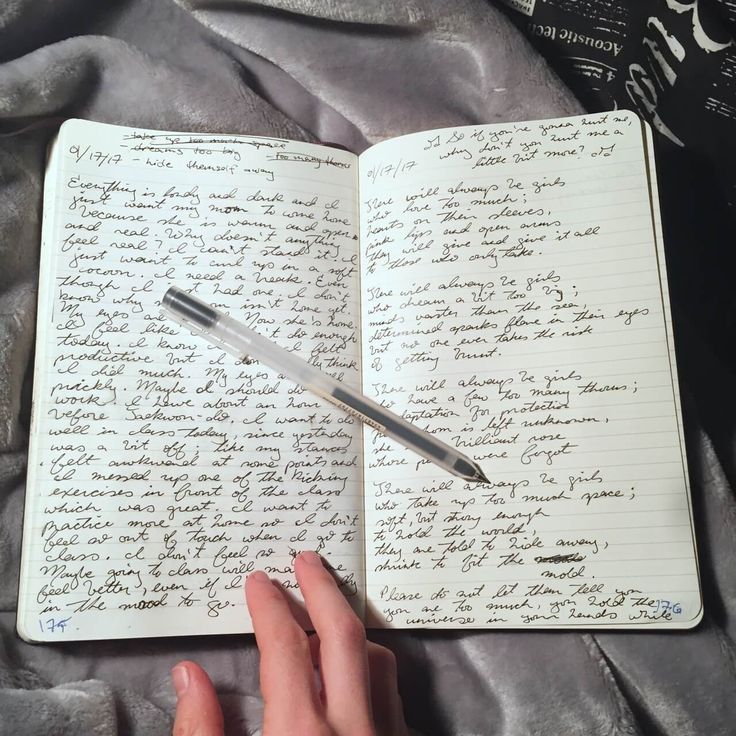 take up too much space
- dreams too big
- too many thorns
01/17/17 - hide themself away
Everything is lonely and dark and I
just want my mom to come home
because she is warm and open
and real. Why doesn't anything
feel real? I can't stand it. I
just want to curl up in a soft
cocoon. I need a break. Even
though I had one. I don't
know why isn't home yet.
My eyes are Now she is home.
I feel like didn't do enough
today. I know I felt
productive but I don't think
I did much. My eyes
prickly. Maybe I should do
work, I have about an hour
before Taekwon-do. I want to do
well in class today, since yesterday
was a bit off; like my stances
felt awkward at some points and
I messed up one of the kicking
exercises in front of the class
which was great. I want to
practice more at home so I don't
feel so out of touch when I go to
class. I don't feel so good.
Maybe going to class will make me
feel better, even if I'm not
in the mood to go.
175
So if you're gonna hurt me,
why don't you hurt me a
little bit more?
01/17/17
There will always be girls
who love too much;
hearts on their sleeves,
pink lips and open arms
they will give and give it all
to those who only take.
There will always be girls
who dream a bit too big;
minds vaster than the sea,
determined sparks flare in their eyes
but no one ever takes the risk
of getting burnt.
There will always be girls
who have a few too many thorns;
adaptation for protection
thorn is left unknown,
she brilliant rose
whose were forgot
There will always be girls
who take up too much space;
soft, but strong enough
to hold the world,
they are told to hide away,
shrink to fit the
mold.
Please do not let them tell you
you are too much, you hold the
universe in your hands while
176
Acoustic tech